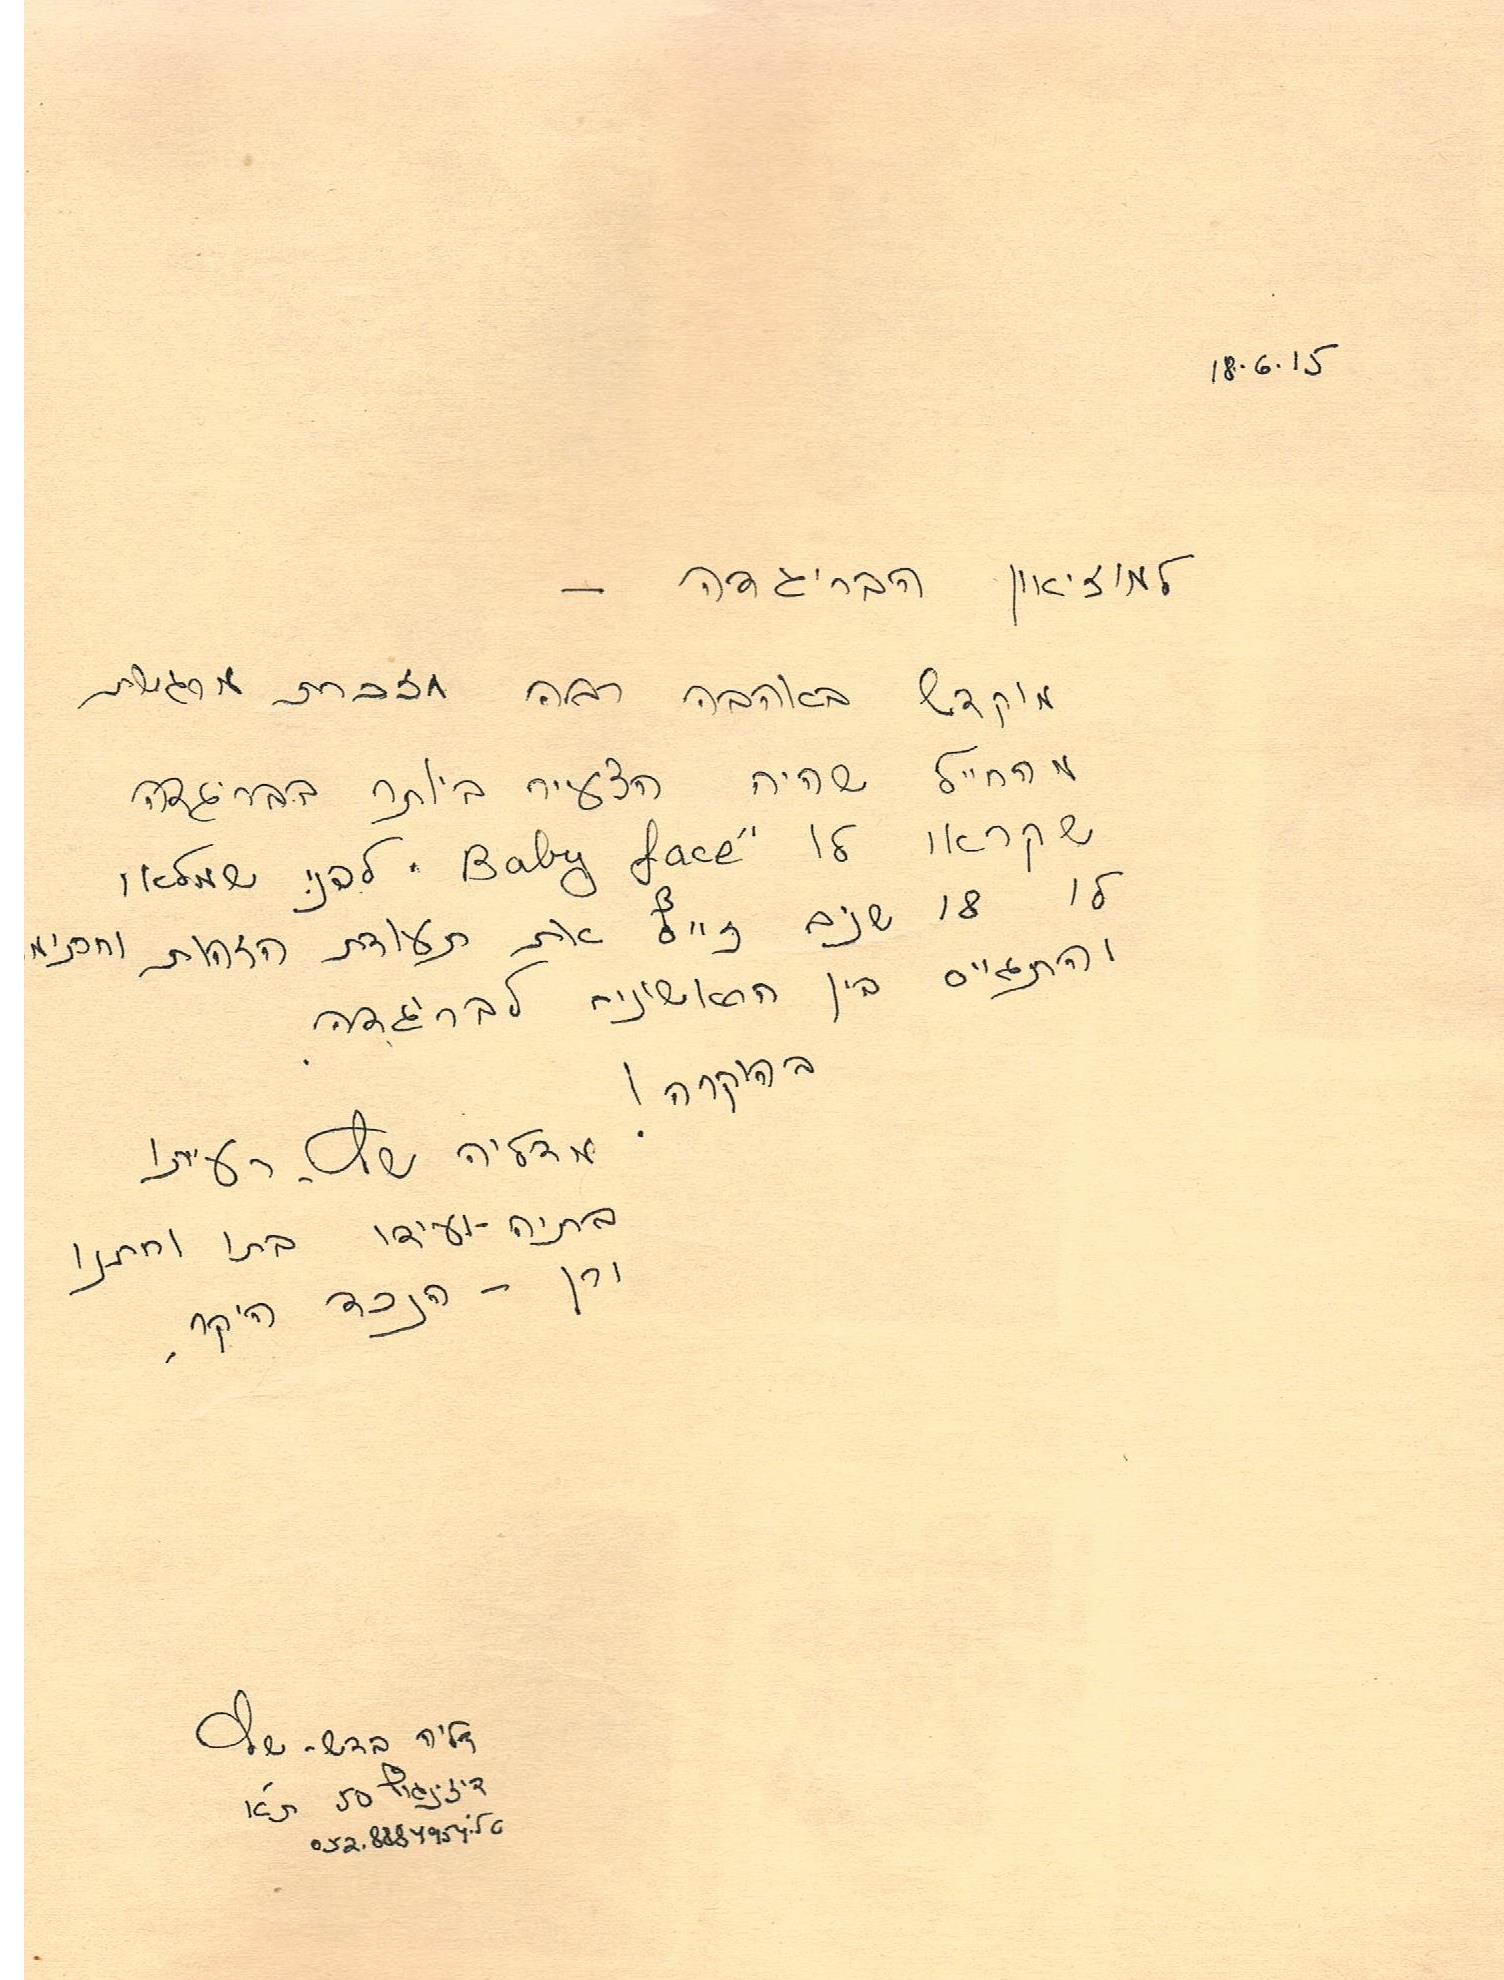 18.6.15
למוזיאון הבריגדה -
מוקדש באהבה רבה מזכרת מרגשת
מהחייל שהיה הצעיר ביותר בבריגדה
שקראו לו "Baby face. לפני שמלאו
לו 18 שנים זייף את תעודת הזהות
והתגייס בין הראשונים לבריגדה.
בהוקרה!
מדליה רעייתו
בתיה-ועידו בתו וחתנו
ורן - הנכד היקר.
דליה
דיזנגוף 50 ת"א
טל. 052.8884954